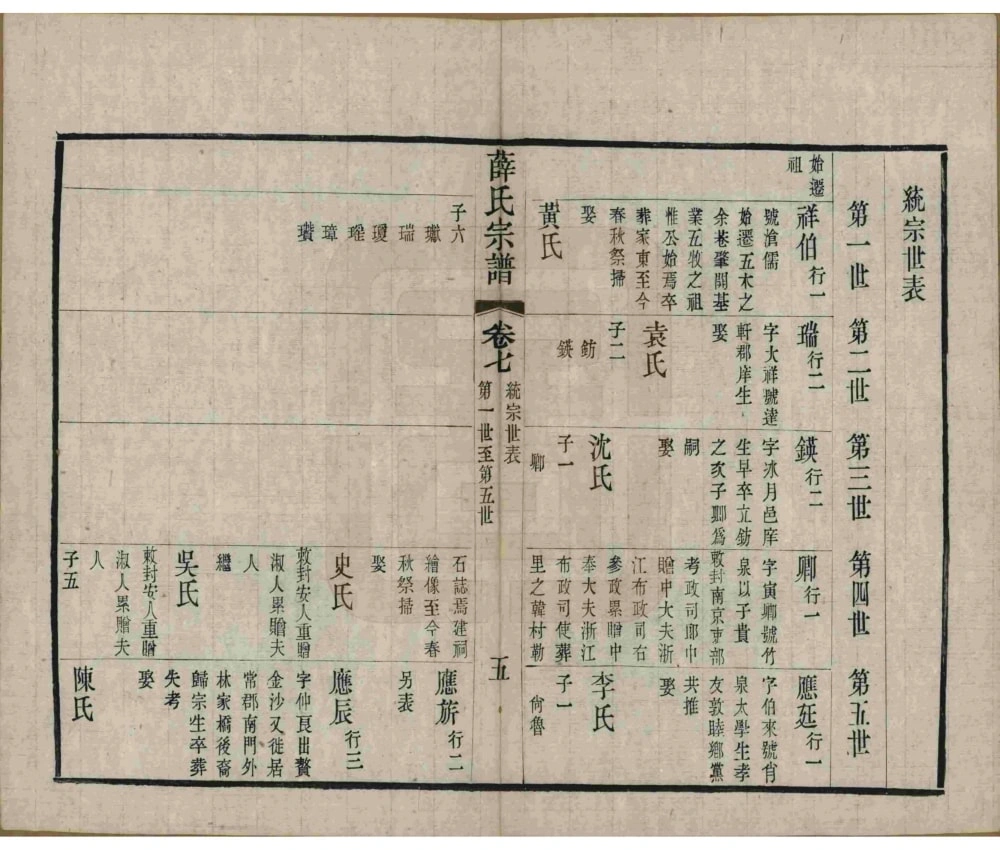 統宗世表
第一世
第二世
第三世
第四世
第五世
始遷
祖
祥伯行一
號滄儒
始遷五木之
余巷肇開基
業五牧之祖
惟公始焉卒
葬家東至今
春秋祭掃
娶
黃氏
瑞行二
字大祥號達
軒郡庠生
娶
袁氏
子二
鈁
鍈
鍈行二
字冰月邑庠
生早卒立鈁
之次子卿爲
嗣
娶
沈氏
子一
卿
卿行一
字寅卿號竹
泉以子貴
敕封南京吏部
考政司郎中
贈中大夫浙
江布政司右
參政累贈中
奉大夫浙江
布政司使葬
里之韓村勒
應廷行一
字伯來號肖
泉太學生孝
友敦睦鄉黨
共推
娶
李氏
子一
尙魯
薛氏宗譜
卷七
統宗世表
第一世至第五世
五
子六
瓛
瑞
瓊
瑤
璋
瓚
石誌焉建祠
繪像至今春
秋祭掃
娶
史氏
敕封安人重贈
淑人累贈夫
人
繼
吳氏
敕封安人重贈
淑人累贈夫
人
子五
應旂行二
另表
應辰行三
字仲良出贅
金沙又徙居
常郡南門外
林家橋後裔
歸宗生卒葬
失考
娶
陳氏